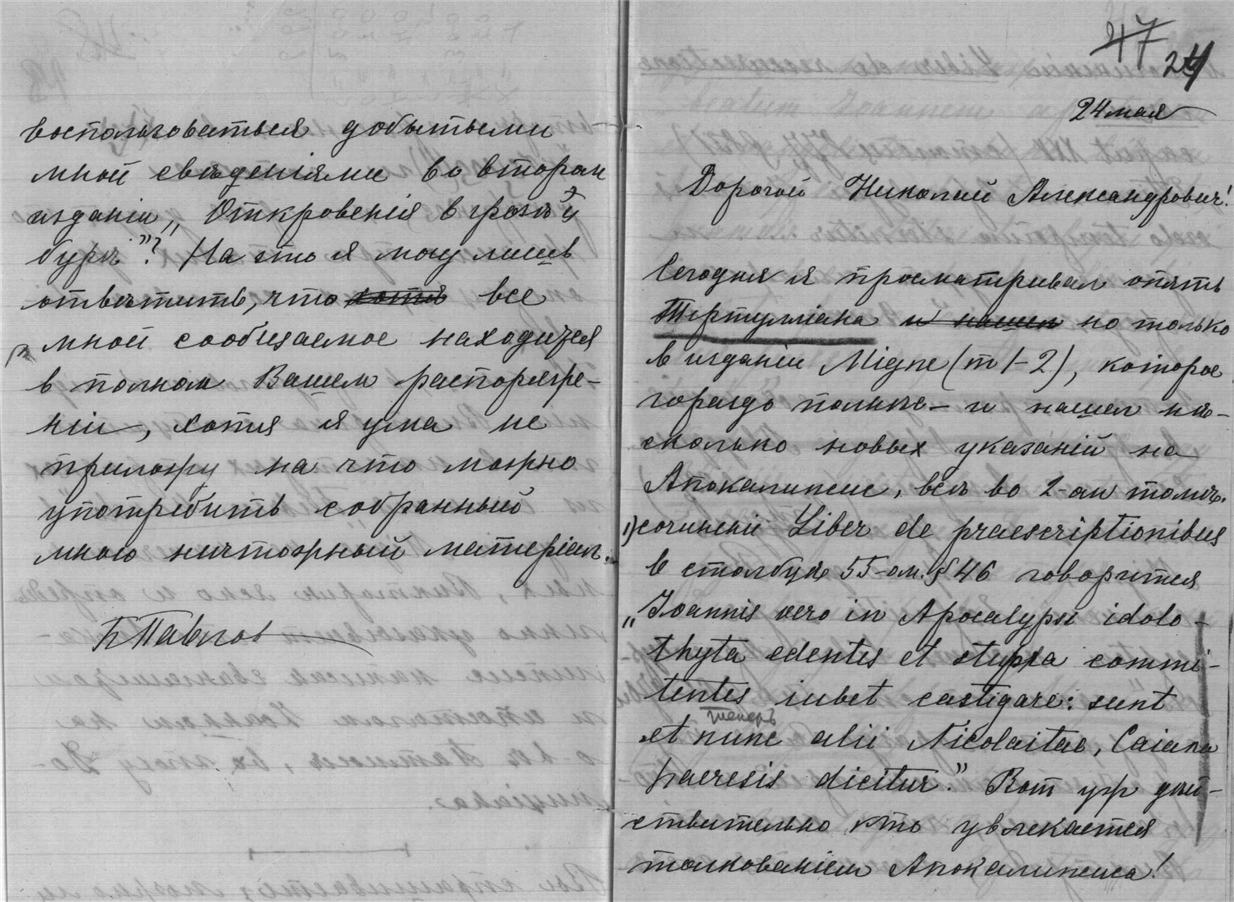 воспользоваться добытыми
мной свѣденіями во втором
изданіи „Откровенія в грозѣ и
бурѣ"? На это я могу лишь
отвѣтить, что хотя все
мной сообщаемое находится
в полном Вашем распоряже-
ніи, хотя я ума не
приложу на что можно
употребить собранный
мною ничтожный матеріал.
47
24
24 мая
Дорогой Николай Александрович!
Сегодня я просматривал опять
Тертулліана и нашел но только
в изданіи Migne (т 1-2), которое
гораздо полнѣе – и нашел нѣ-
сколько новых указаній на
Апокалипсис, всѣ во 2-ом томѣ.
1) сочиненіи Liber de praescriptionibus
в столбцѣ 55-ом. § 46 говорится
„Joannis vero in Apocalypsi idolo-
thyta edentes et stupra commi-
tentes iubet castigare: sunt
теперь
et nunc alii Nicolaitae, Caiana
haeresis dicitur." Вот уж дѣй-
ствительно кто увлекается
толкованіем Апокалипсиса!